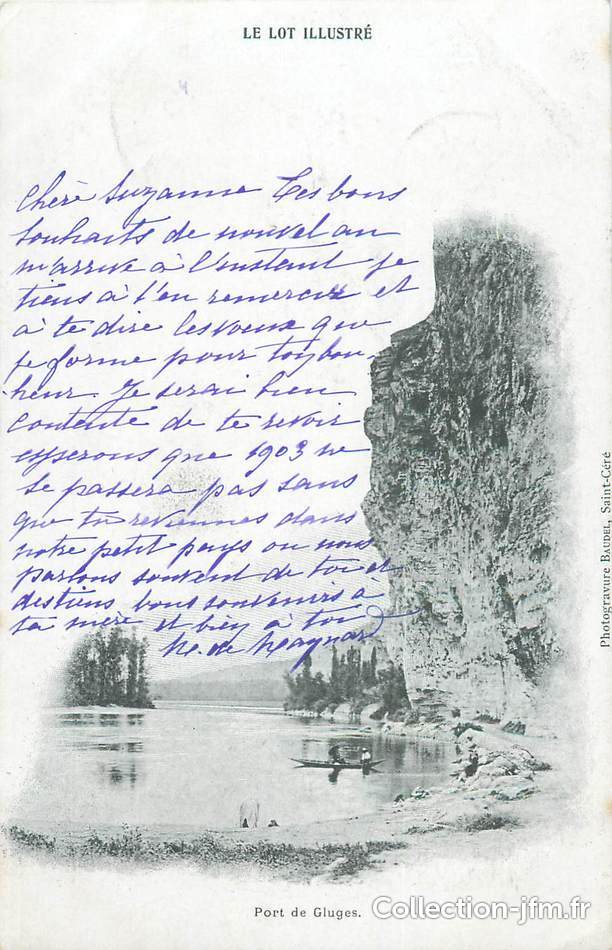 LE LOT ILLUSTRÉ
Chère Suzanne Tes bons
souhaits de nouvel an
m'arrive à l'instant je
tiens à t'en remercier et
à te dire les voeux que
je forme pour toy bon-
heur. Je serai bien
contente de te revoir
esperons que 1903 ne
se passera pas sans
que tu reviennes dans
notre petit pays ou nous
parlons souvent de toi et
des tiens, bons souvenirs à
ta mère et bien à toi
M. de Maynard
Photogravure BAUDEL, Saint-Céré
Port de Gluges.
Collection-jfm.fr